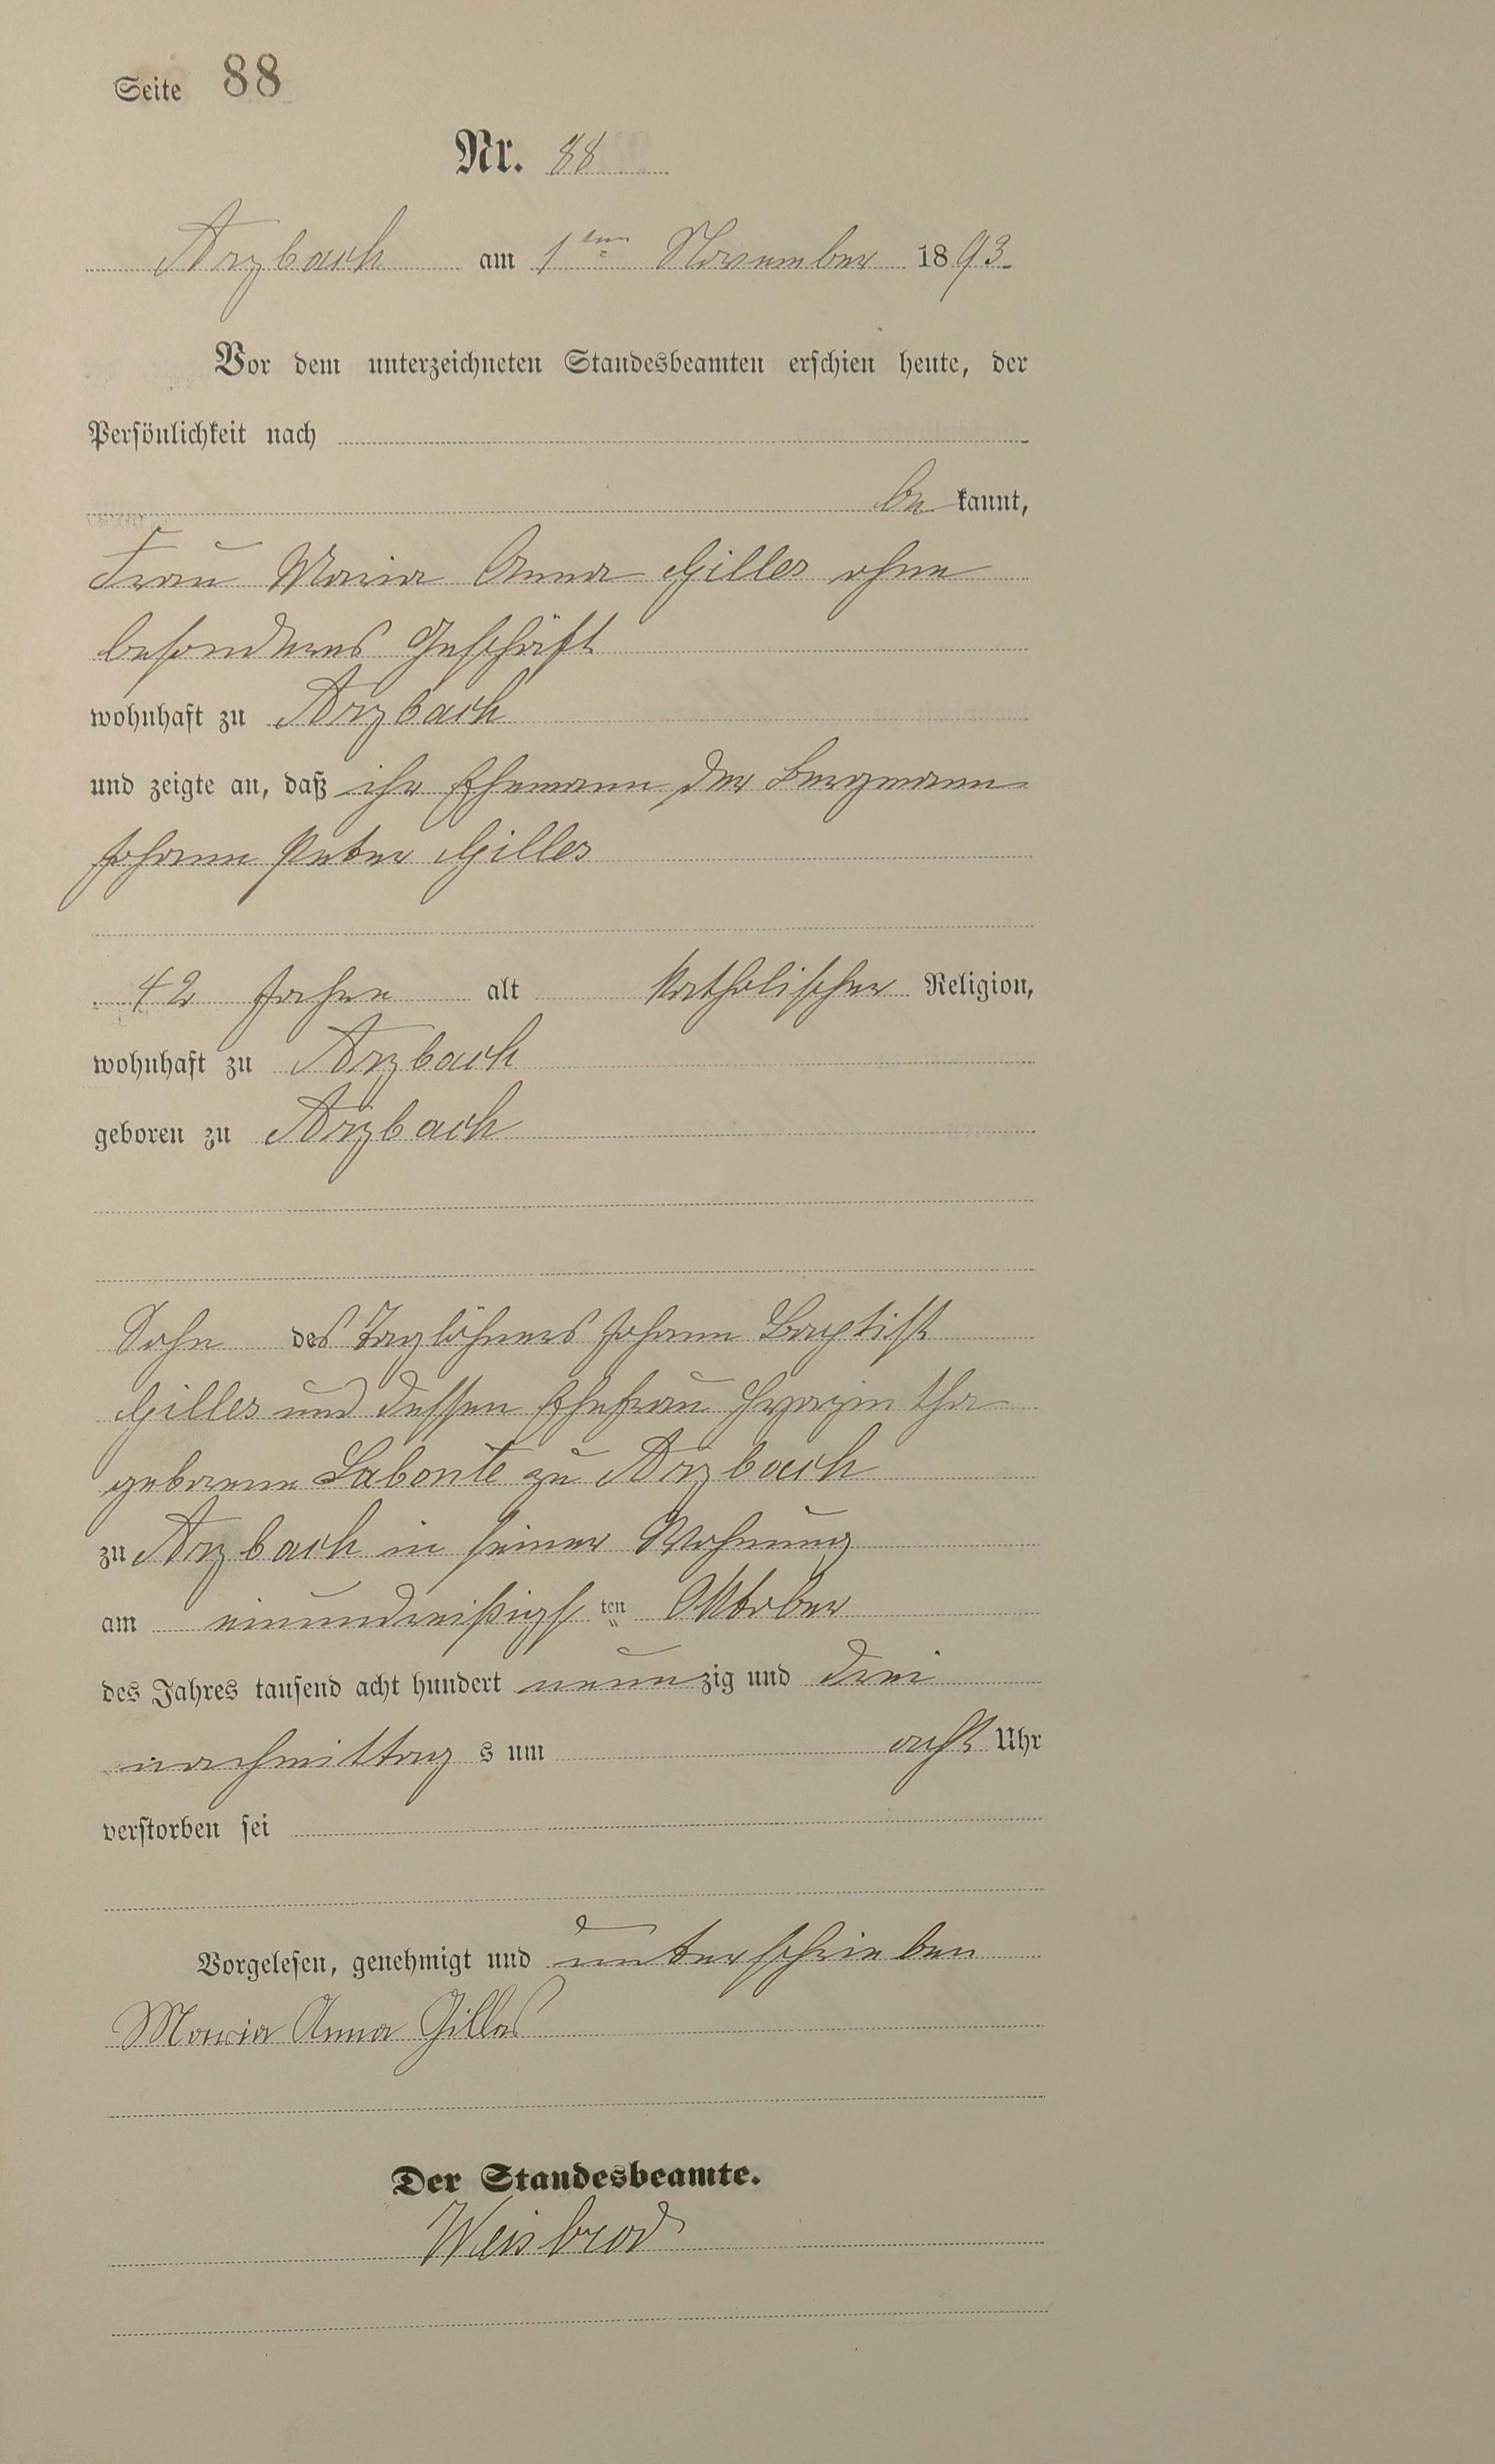 Seite 88
Nr. 88
Arzbach am 1ten November 1893.
Vor dem unterzeichneten Standesbeamten erschien heute, der
Persönlichkeit nach
be kannt,
Frau Maria Anna Gilles ohne
besonderes Geschäft
wohnhaft zu Arzbach
und zeigte an, daß ihr Ehemann der Bergmann
Johann Peter Gilles
42 Jahre alt katholischer Religion,
wohnhaft zu Arzbach
geboren zu Arzbach
Sohn des Taglöhners Johann Baptist
Gilles und dessen Ehefrau
geborene Labonte zu Arzbach
zu Arzbach in seiner Wohnung
am einunddreißigsten Oktober
des Jahres tausend acht hundert neunzig und drei
nachmittags um acht Uhr
verstorben sei
Vorgelesen, genehmigt und unterschrieben
Maria Anna Gilles
Der Standesbeamte.
Weisbrod